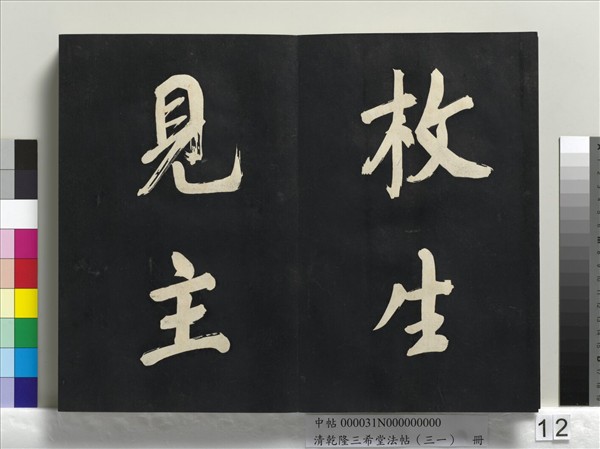 枚生
見主
中帖 000031N000000000
清乾隆三希堂法帖（三一） 冊
12